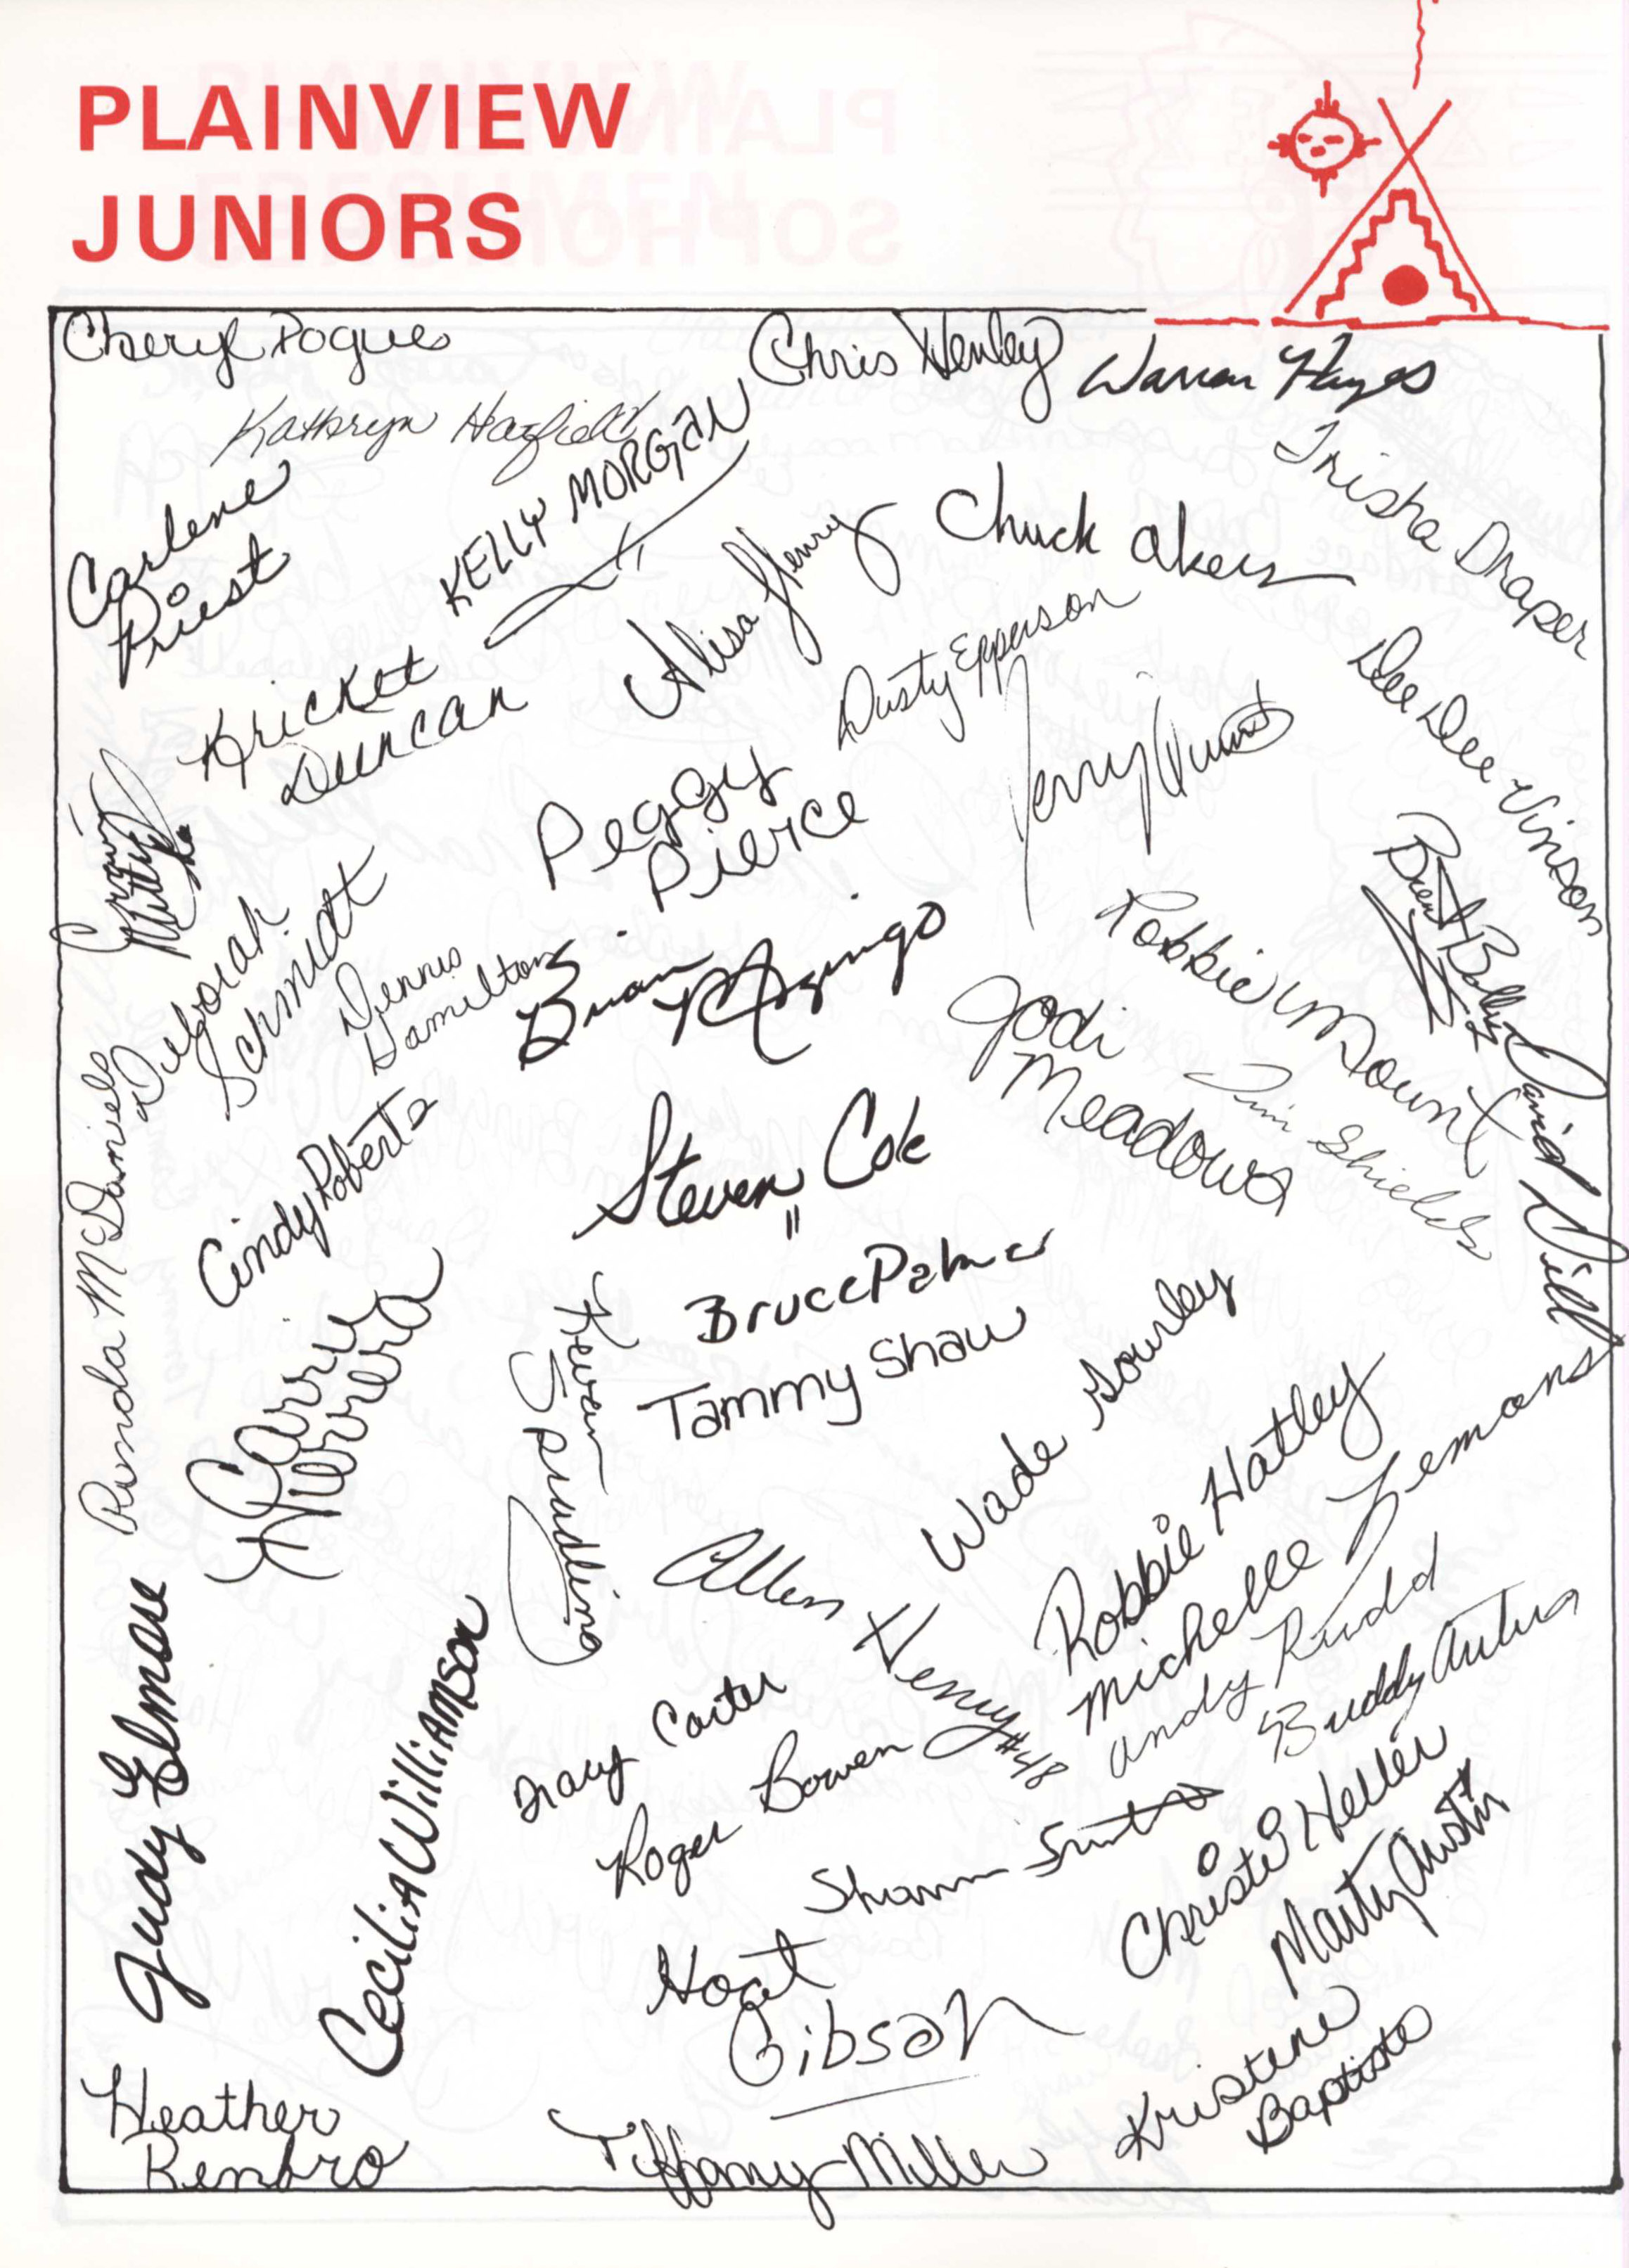 PLAINVIEW
JUNIORS
Cheryl Pogue
Chris Henley
Warren Hayes
Kathryn Hatfield
KELLY MORGAN
Trisha Draper
Carlene
Priest
Chuck Akers
Alisa Henry
Kricket
Duncan
Dusty Epperson
Dee Dee Vinson
Jerry
Peggy
Pierce
Brent
Deborah
Schmidt
Dennis
Hamilton
Brian
Robbie Mount
Jodi
Meadows
David Dill
Runda McDaniels
Cindy Roberts
Steven Cole
Jim Shields
Bruce Palmer
Tammy Shaw
Carry
Herrera
Kevan
Spradling
Wade Gourley
Robbie Hatley
Michelle Lemons
Andy Rudd
Buddy
Allen Henry #48
Judy Elmore
Cecilia Williamson
Tracy Carter
Roger Bowen
Christi Heller
Marty Austin
Hoot
Gibson
Kristene
Baptiste
Heather
Renbro
Tiffany Miller